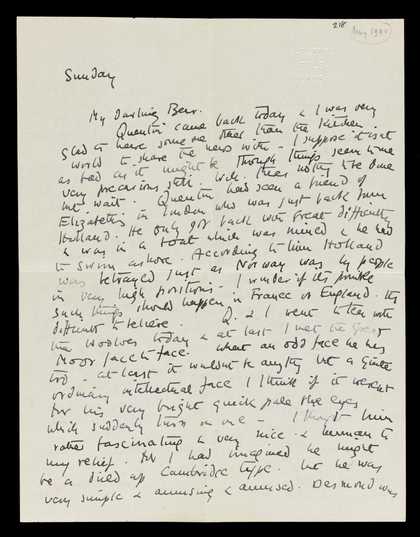 218
May 1940
Sunday
My Darling Bear.
Quentin came back today & I was very
glad to have someone other than the kitchen
world to share the news with - I suppose it isnt
as bad as it might be though things seem to me
very precarious still. Well theres nothing to be done
but wait. Quentin had seen a friend of
Elizabeths in London who was just back from
Holland. He only got back with great difficulty
& was in a boat which was mined & he had
to swim ashore. According to him Holland
was betrayed just as Norway was by people
in very high positions - I wonder if its possible
such things should happen in France or England. Its
difficult to believe Q. & I went to tea with
the Woolves today & at last I met the Great
Moore face to face. What an odd face he has
too at least it wouldnt be anything but a quite
ordinary intellectual face I think if it werent
for his very bright quick pale blue eyes
which suddenly turn on one - I thought him
rather fascinating & very nice & human to
my relief. I had imagined he might
be a dried up Cambridge type. but he was
very simple & amusing & amused. Desmond was